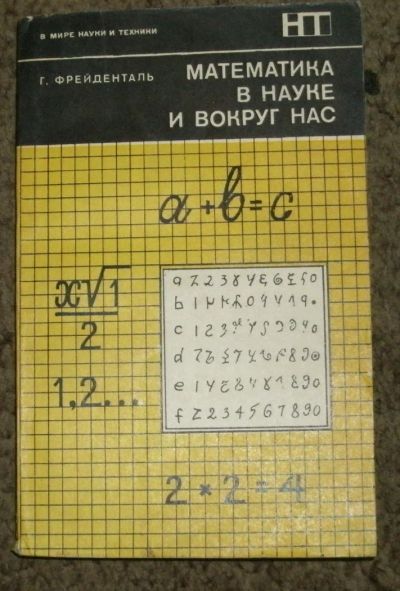 В МИРЕ НАУКИ И ТЕХНИКИ
НТ
Г. ФРЕЙДЕНТАЛЬ
МАТЕМАТИКА
В НАУКЕ
И ВОКРУГ НАС
a+b=c
x√1
2
1,2...
a
b
c
d
e
f 2 2 3 4 5 6 7 8 9 0
2 × 2 = 4